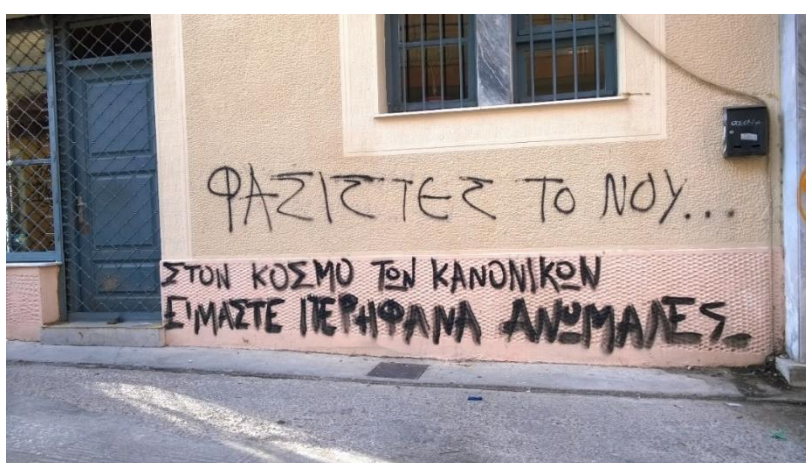 ΦΑΣΙΣΤΕΣ ΤΟ ΝΟΥ...
ΣΤΟΝ ΚΟΣΜΟ ΤΩΝ ΚΑΝΟΝΙΚΩΝ
ΕΙΜΑΣΤΕ ΠΕΡΗΦΑΝΑ ΑΝΩΜΑΛΕΣ